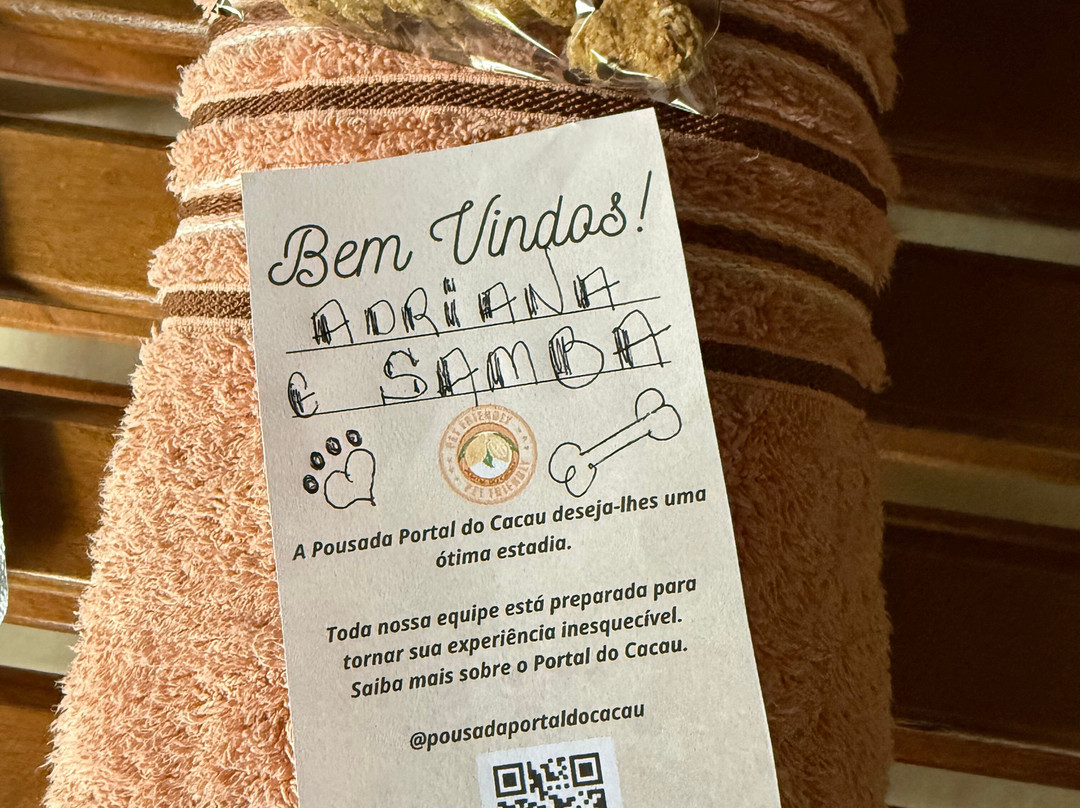 Bem Vindos!
ADRIANA
E SAMBA
PET FRIENDLY
PET FRIENDLY
A Pousada Portal do Cacau deseja-lhes uma
ótima estadia.
Toda nossa equipe está preparada para
tornar sua experiência inesquecível.
Saiba mais sobre o Portal do Cacau.
@pousadaportaldocacau